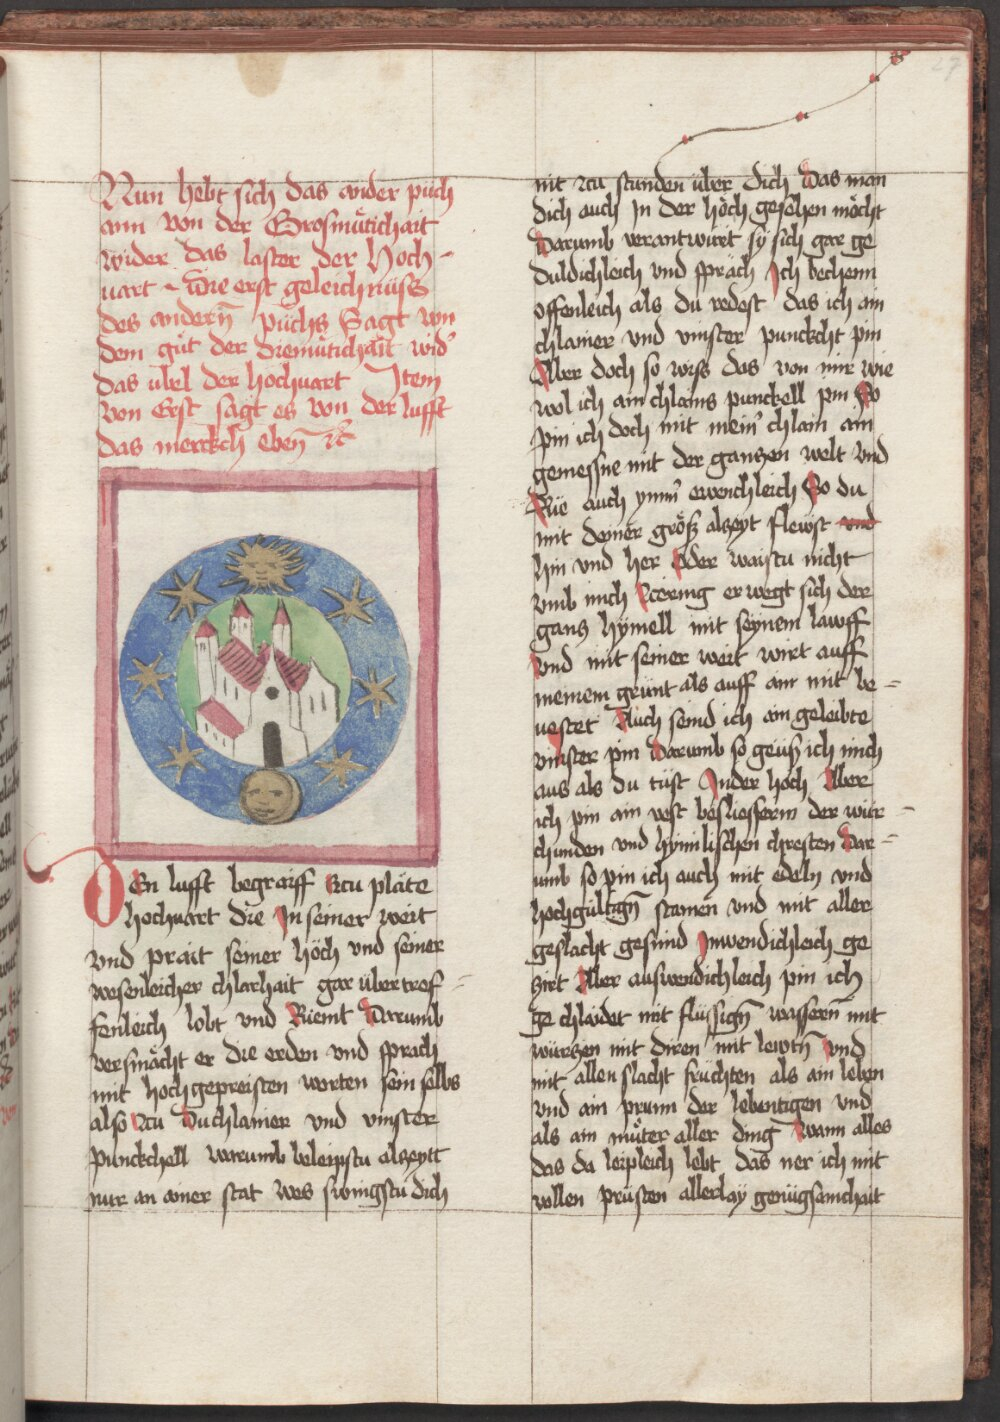 27
Nun hebt sich das ander püch
ann von der Grosmütichait
wider das laster der Hoch-
uart Die erst geleichnüss
des andern̄ püchs Sagt von
dem gůt der Diemütichait wid'
das übel der hochuart Item
von Erst sagt es von der lufft
das merckch eben̄ rc̄
DEn lufft begraiff Zcu pläte
hochuart die In seiner weit
vnd prait seiner höch vnd seiner
wesenleicher chlarhait gar übertref-
fenleich lobt vnd Riemt Darumb
versmächt er die erden vnd sprach
mit hochgepreisten worten sein selbs
also Zcu Du chlainer vnd vinster
Punckchell warumb beleipstu alzeytt
nur an ainer stat wes swingstu dich
nit zcu stunden über dich Das man
dich auch In der höch gesehen möcht
Darumb verantwürt sÿ sich gar ge
duldichleich vnd sprach Ich bechenn
offenleich als du redest das ich ain
chlainer vnd vinster punckcht pin
Aber doch so wiss das von mir wie
wol ich ain chlains punckell pin So
pin ich doch mit mein' chlain ain
gemessne mit der ganczen welt Vnd
Rüe auch ymm' ewenchleich So du
mit deiner größ alzeyt flewst vnd
hin vnd her Oder waistu nicht
vmb mich Zcöring erwegt sich der
gancz hÿmell mit seÿnem lawff
Vnd mit seiner weit wirt auff
meinem grünt als auff aim mit be-
uestet Auch seind ich ain geleibte
vinster pin Darumb so geüß ich mich
aus als du tüst In der höch Aber
ich pin ain vest besliesserin der wür-
chunden vnd hÿmlischen chresten Dar-
umb so pin ich auch mit edeln vnd
hochgültign̄ stainen vnd mit aller
geslacht gesund Inwendichleich ge
zirt Aber auswendichleich pin ich
ge chlaidet mit flüssign̄ wassern̄ mit
würczen mit diren mit lewtn̄ Vnd
mit allen slacht früchten als ain leben
vnd ain prunn der lebentigen vnd
als ain müter aller ding Wann alles
das da leipleich lebt das ner ich mit
vollen prüsten allerlaÿ genügsamchait